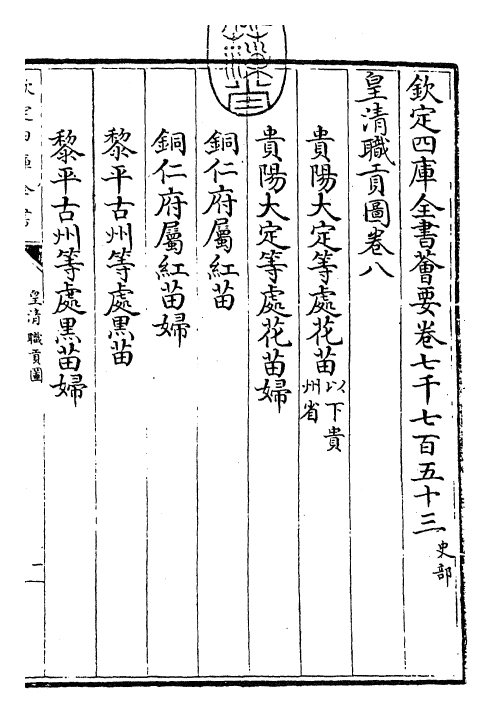 欽定四庫全書薈要卷七千七百五十三 史部
皇清職貢圖卷八
貴陽大定等處花苗 以下貴州省
貴陽大定等處花苗婦
銅仁府屬紅苗
銅仁府屬紅苗婦
黎平古州等處黑苗
黎平古州等處黑苗婦
欽定四庫全書
皇清職貢圖